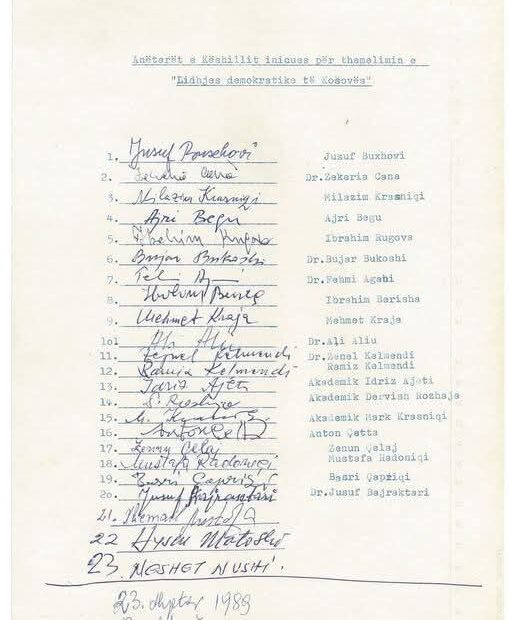 Anëtarët e Këshillit inicues për themelimin e
"Lidhjes demokratike të Kosovës"
1. Jusuf Buxhovi Jusuf Buxhovi
2. Zekeria Cana Dr.Zekeria Cana
3. Milazim Krasniqi Milazim Krasniqi
4. Ajri Begu Ajri Begu
5. Ibrahim Rugova Ibrahim Rugova
6. Bujar Bukoshi Dr.Bujar Bukoshi
7. Dr.Fehmi Agahi
8. Ibrahim Berisha
9. Mehmet Kraja Mehmet Kraja
10. Ali Aliu Dr.Ali Aliu
11. Zenel Kelmendi Dr.Zenel Kelmendi
12. Ramiz Kelmendi Ramiz Kelmendi
13. Idriz Ajeti Akademik Idriz Ajeti
14. Akademik Dervish Rozhaja
15. Akademik Mark Krasniqi
16. Anton Çetta Anton Çetta
17. Zenun Çelaj Zenun Çelaj
18. Mustafa Radoniqi Mustafa Radoniqi
19. Basri Çapriqi Basri Çapriqi
20. Jusuf Bajraktari Dr.Jusuf Bajraktari
21.
22 Hysen Matoshi
23. NEXHET NUSHI.
23. dhjetor 1989